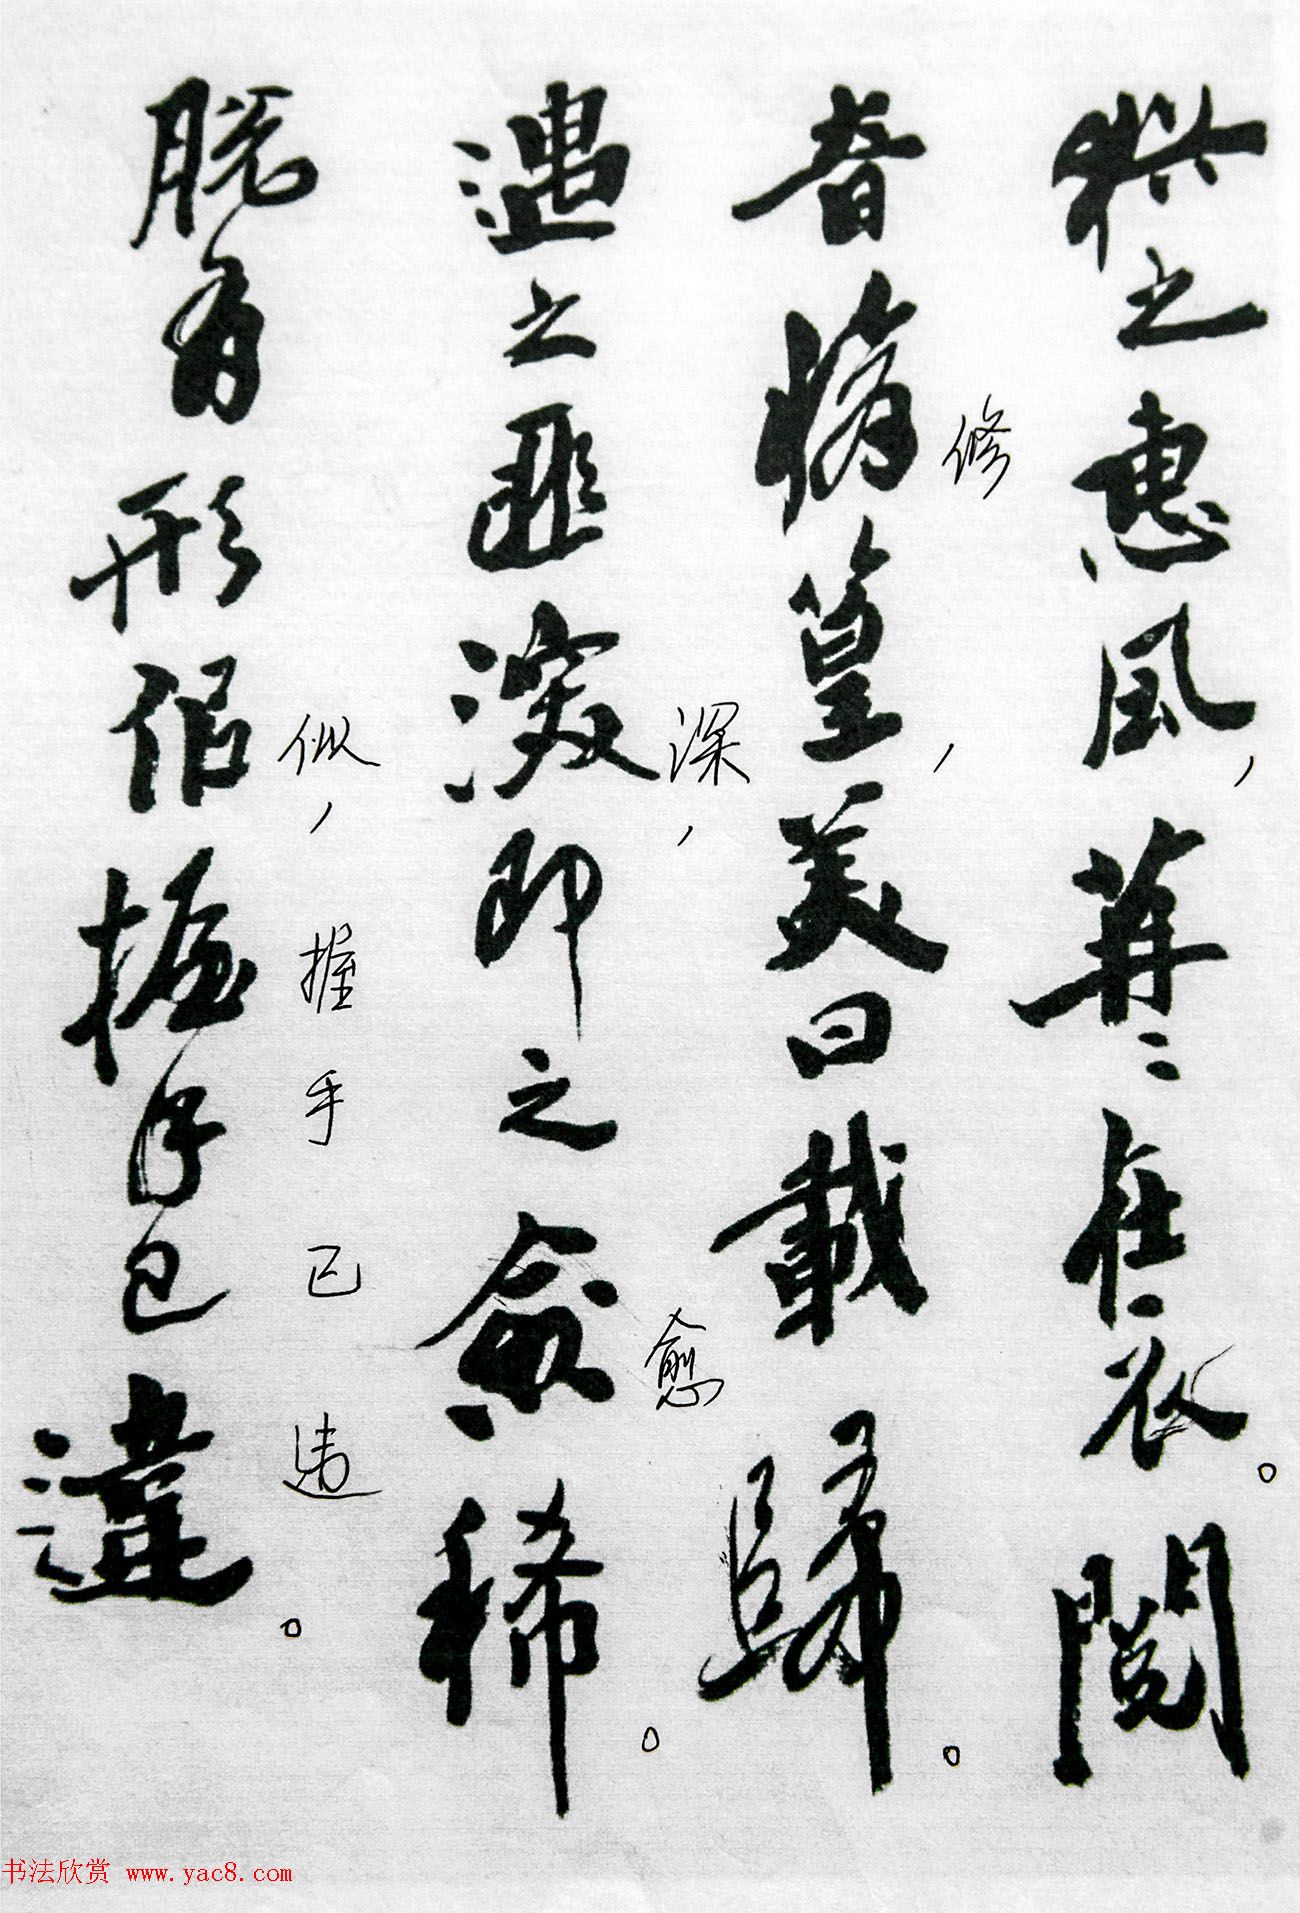 猶之惠風，苒〻在衣。閱
音脩篁，美曰載歸。
修
遇之匪深，即之愈稀。
深
愈
脱有形似，握手已違。
似，握手已违
书法欣赏 www.yac8.com